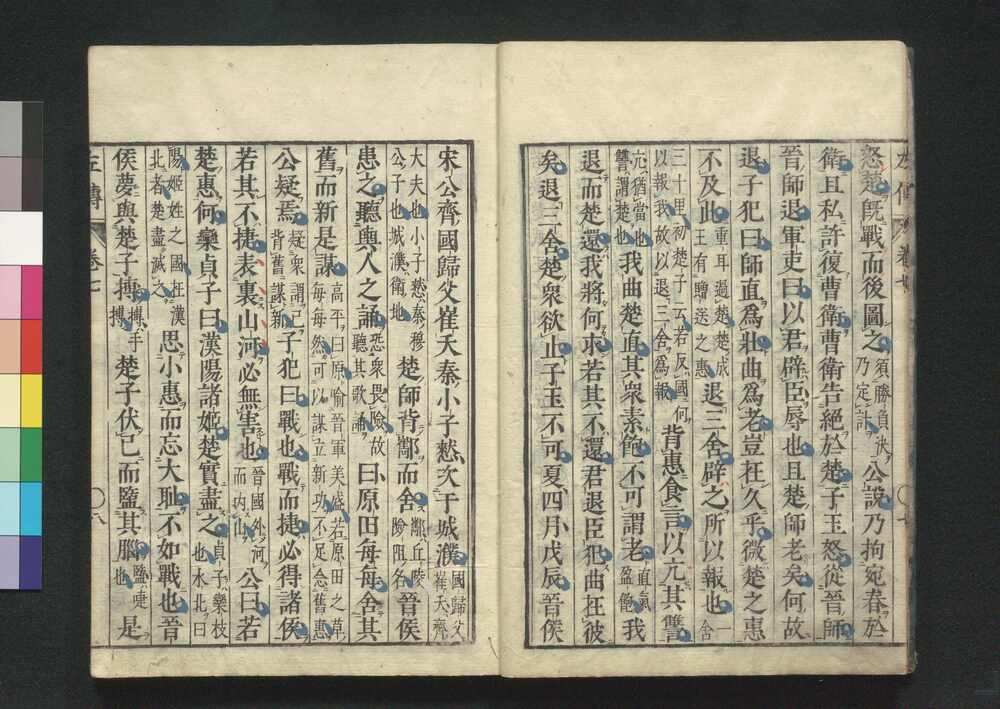 左傳 卷七
怒楚既戰而後圖之須勝負決乃定計公說乃拘宛春於
衛且私許復曹衛曹衛告絕於楚子玉怒從晉師
晉師退軍吏曰以君辟臣辱也且楚師老矣何故
退子犯曰師直爲壯曲爲老豈在久乎微楚之惠
不及此重耳過楚楚成王有贈送之惠退三舍辟之所以報也一舍
三十里初楚子云若反國何以報我故以退三舍爲報背惠食言以亢其讐
亢猶當也讐謂楚也我曲楚直其衆素飽不可謂老直氣盈飽我
退而楚還我將何求若其不還君退臣犯曲在彼
矣退三舍楚衆欲止子玉不可夏四月戊辰晉侯
宋公齊國歸父崔夭秦小子憖次于城濮國歸父崔夭齊
大夫也小子憖秦穆公子也城濮衛地楚師背酅而舍酅丘陵險阻名晉侯
患之聽輿人之誦恐衆畏險故聽其歌誦曰原田每每舍其
舊而新是謀高平曰原喻晉軍美盛若原田之草每每然可以謀立新功不足念舊惠
公疑焉疑衆謂己背舊謀新子犯曰戰也戰而捷必得諸侯
若其不捷表裏山河必無害也晉國外河而内山公曰若
楚惠何欒貞子曰漢陽諸姬楚實盡之貞子欒枝也水北曰
陽姬姓之國在漢北者楚盡滅之思小惠而忘大耻不如戰也晉
侯夢與楚子搏搏手搏楚子伏己而盬其腦盬啑也是
左傳 卷七 〇八